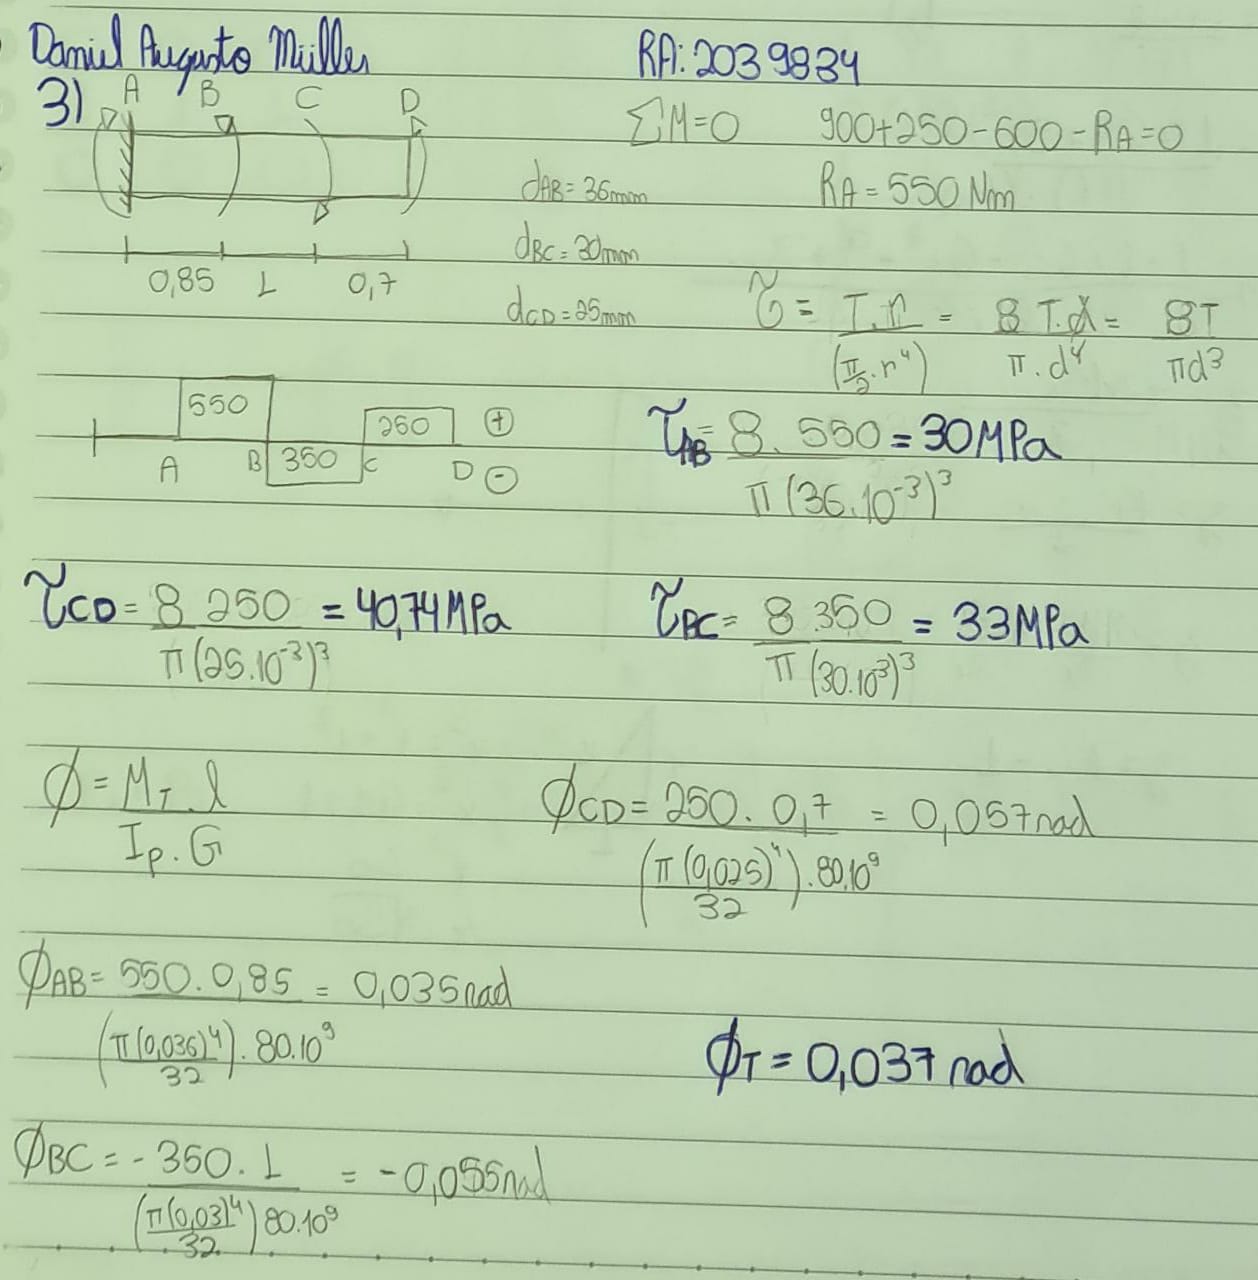 Daniel Augusto Müller RA: 2039834
3) A B C D ΣM=0 900+250-600-RA=0
dAB=36mm RA=550Nm
dBC=30mm
0,85 1 0,7 dCD=25mm
τ = T.r / (π/2 . r⁴) = 8 T.d / π.d⁴ = 8T / πd³
550 250 ⊕ τAB = 8. 550 / π(36.10⁻³)³ = 30MPa
A B 350 C D ⊖
τCD = 8 250 / π(25.10⁻³)³ = 40,74MPa τBC = 8.350 / π(30.10³)³ = 33MPa
ϕ = MT.l / Ip.G ϕCD = 250. 0,7 / (π(0,025)⁴ / 32).80.10⁹ = 0,057rad
ϕAB = 550.0,85 / (π(0,036)⁴ / 32).80.10⁹ = 0,035rad
ϕT = 0,037rad
ϕBC = -350.1 / (π(0,03)⁴ / 32)80.10⁹ = -0,055rad